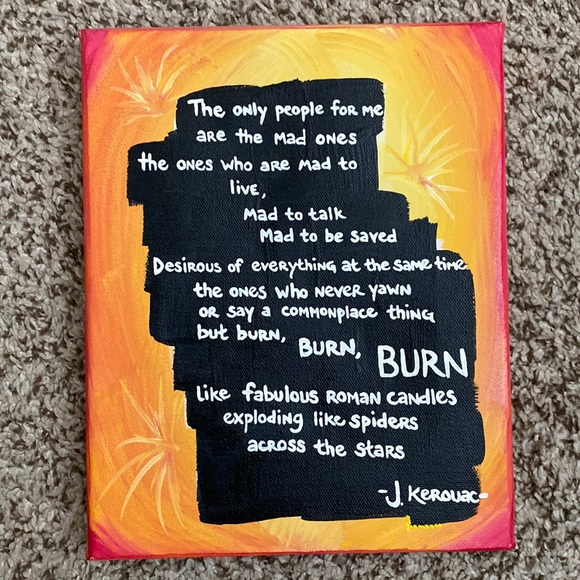 The only people for me
are the mad ones
the ones who are mad to
live,
mad to talk
Mad to be saved
Desirous of everything at the same time
the ones who never yawn
or say a commonplace thing
but burn, BURN, BURN
like fabulous ROMAN CANDLES
exploding like spiders
across the stars
-J. Kerouac-